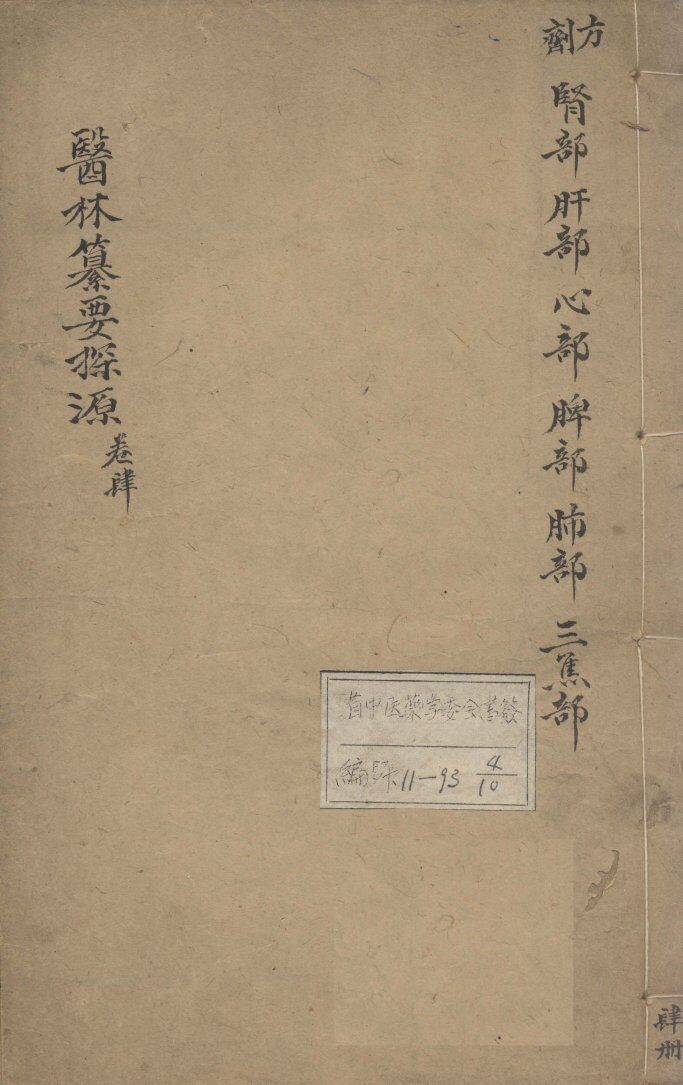 方劑
腎部 肝部 心部 脾部 肺部 三焦部
醫林纂要探源
卷肆
省中医藥学委会書籤
編號 11-93 4/10
肆册